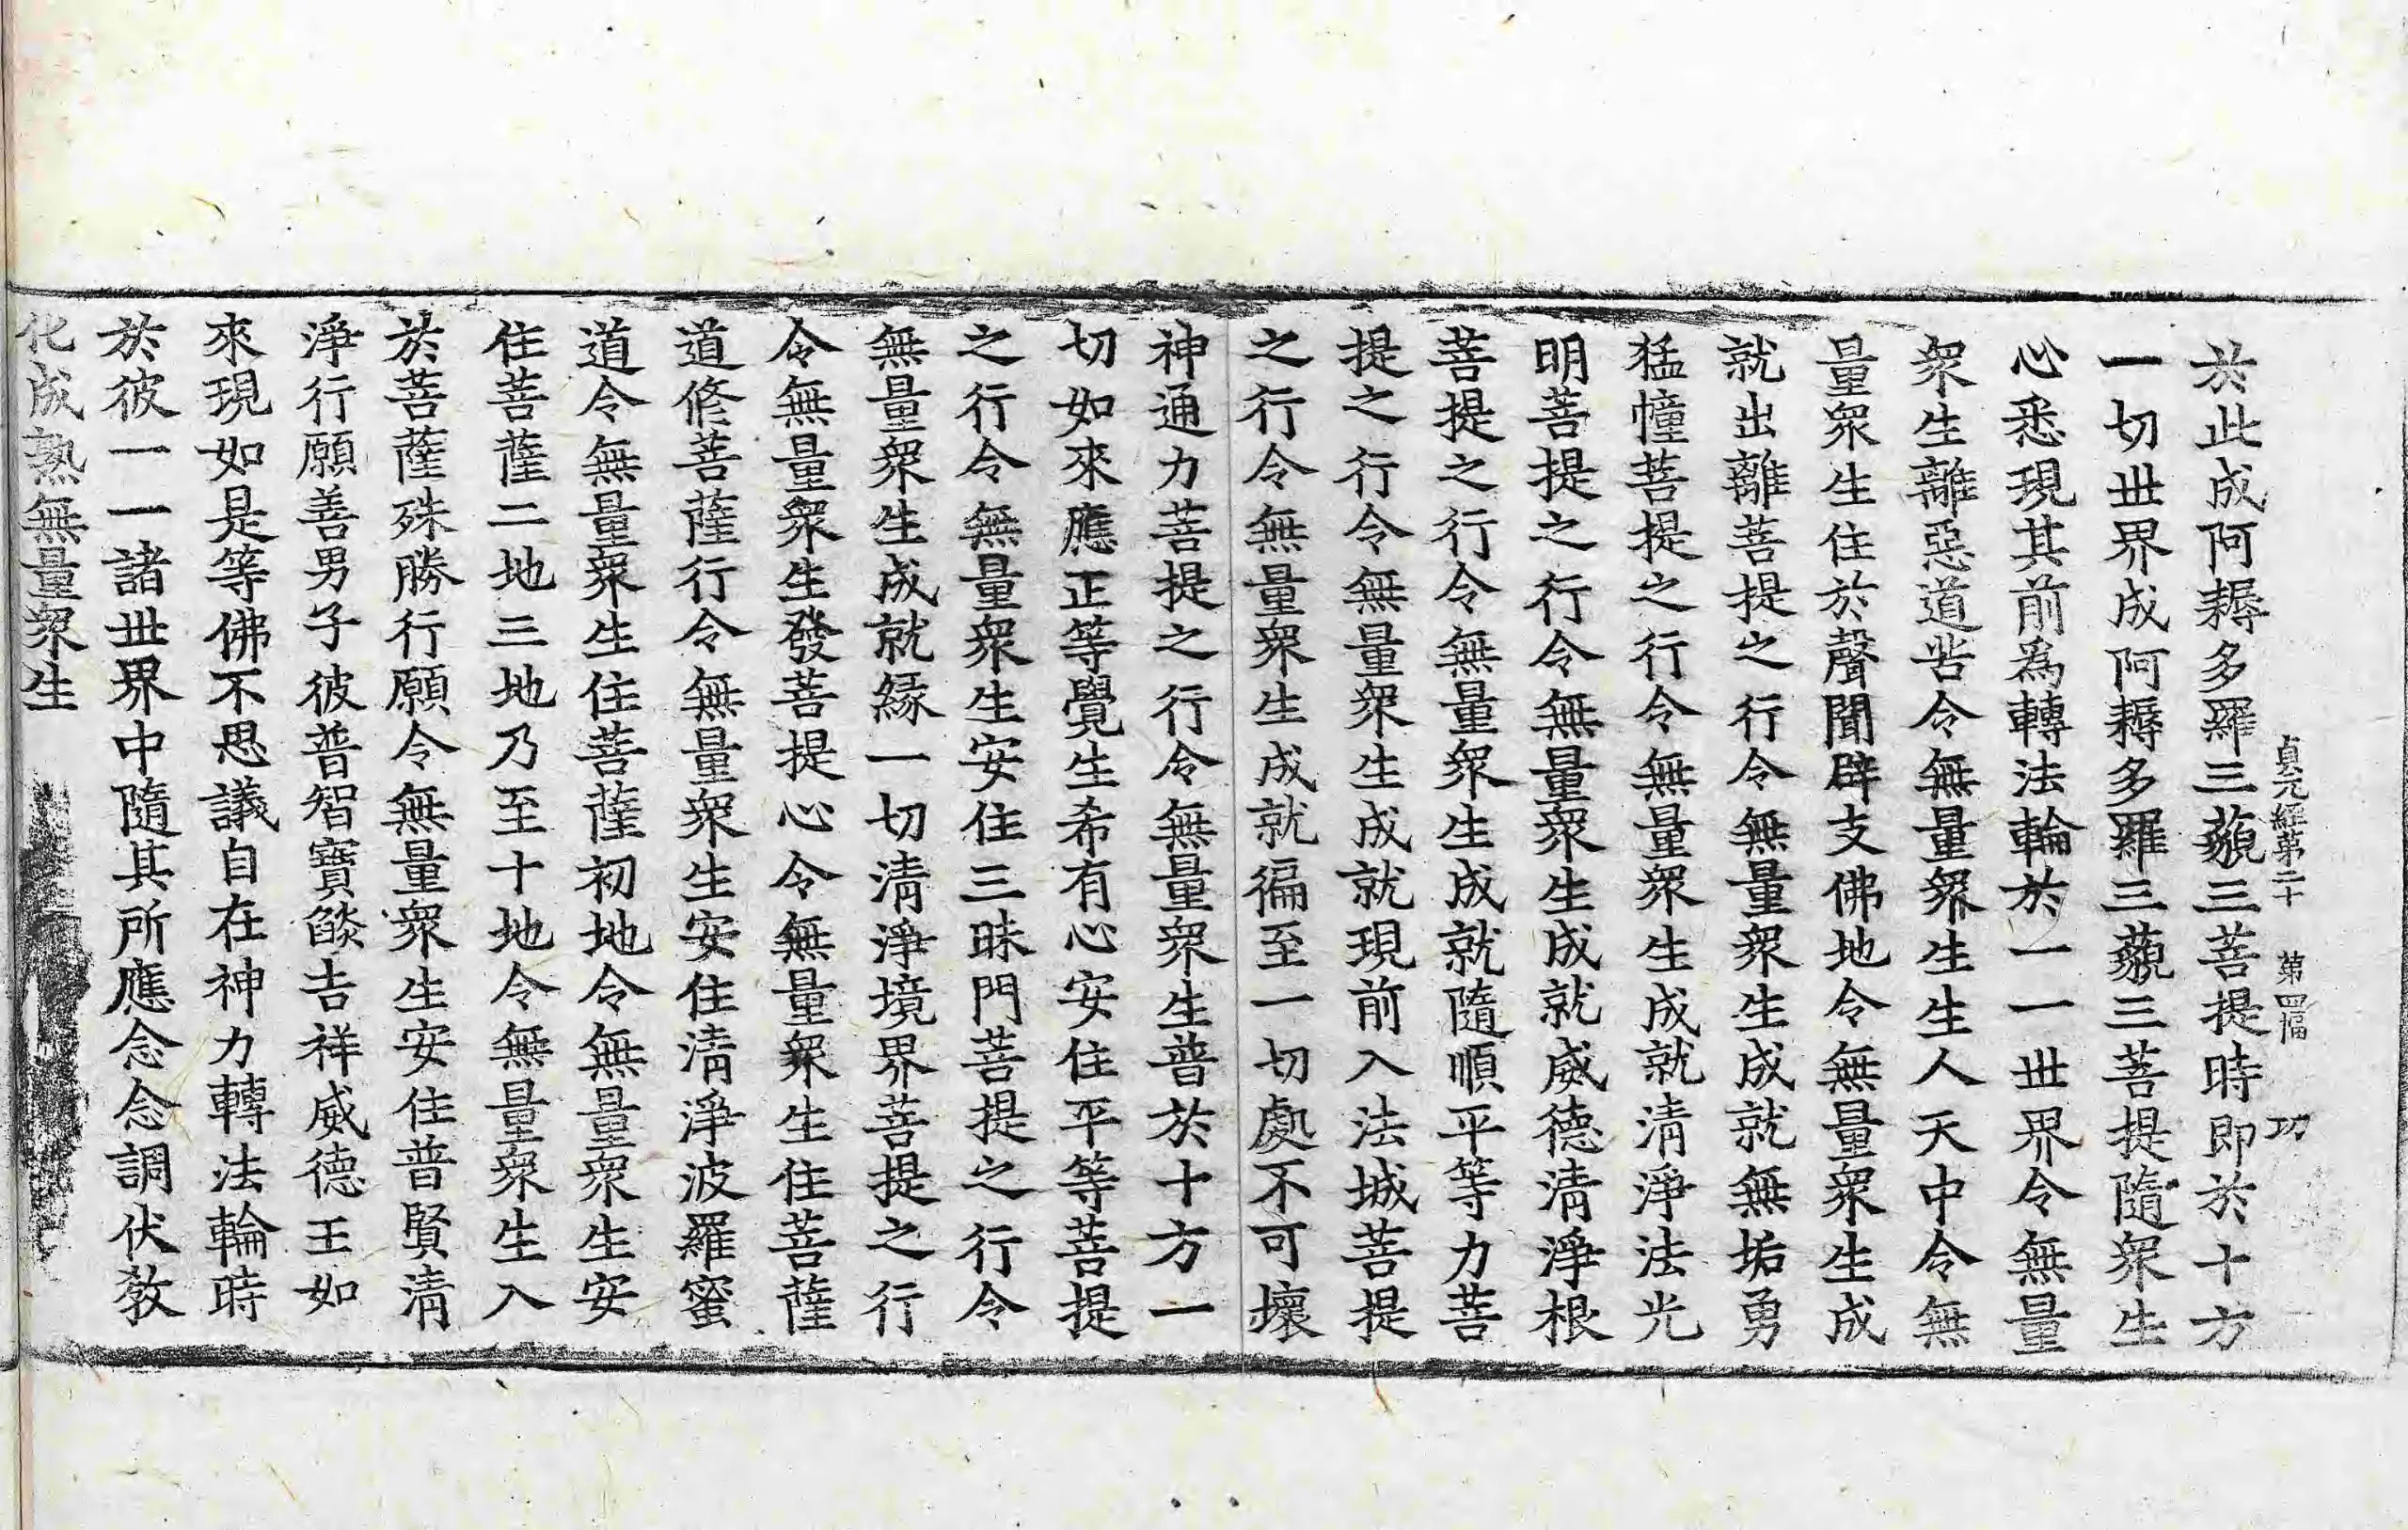 貞元經第二十　第四幅　功
於此成阿耨多羅三藐三菩提時即於十方
一切世界成阿耨多羅三藐三菩提隨衆生
心悉現其前為轉法輪於一一世界令無量
衆生離惡道苦令無量衆生生人天中令無
量衆生住於聲聞辟支佛地令無量衆生成
就出離菩提之行令無量衆生成就無垢勇
猛幢菩提之行令無量衆生成就清淨法光
明菩提之行令無量衆生成就威德清淨根
菩提之行令無量衆生成就隨順平等力菩
提之行令無量衆生成就現前入法城菩提
之行令無量衆生成就徧至一切處不可壞
神通力菩提之行令無量衆生普於十方一
切如來應正等覺生希有心安住平等菩提
之行令無量衆生安住三昧門菩提之行令
無量衆生成就緣一切清淨境界菩提之行
令無量衆生發菩提心令無量衆生住菩薩
道修菩薩行令無量衆生安住清淨波羅蜜
道令無量衆生住菩薩初地令無量衆生安
住菩薩二地三地乃至十地令無量衆生入
於菩薩殊勝行願令無量衆生安住普賢清
淨行願善男子彼普智寶燄吉祥威德王如
來現如是等佛不思議自在神力轉法輪時
於彼一一諸世界中隨其所應念念調伏教
化成熟無量衆生